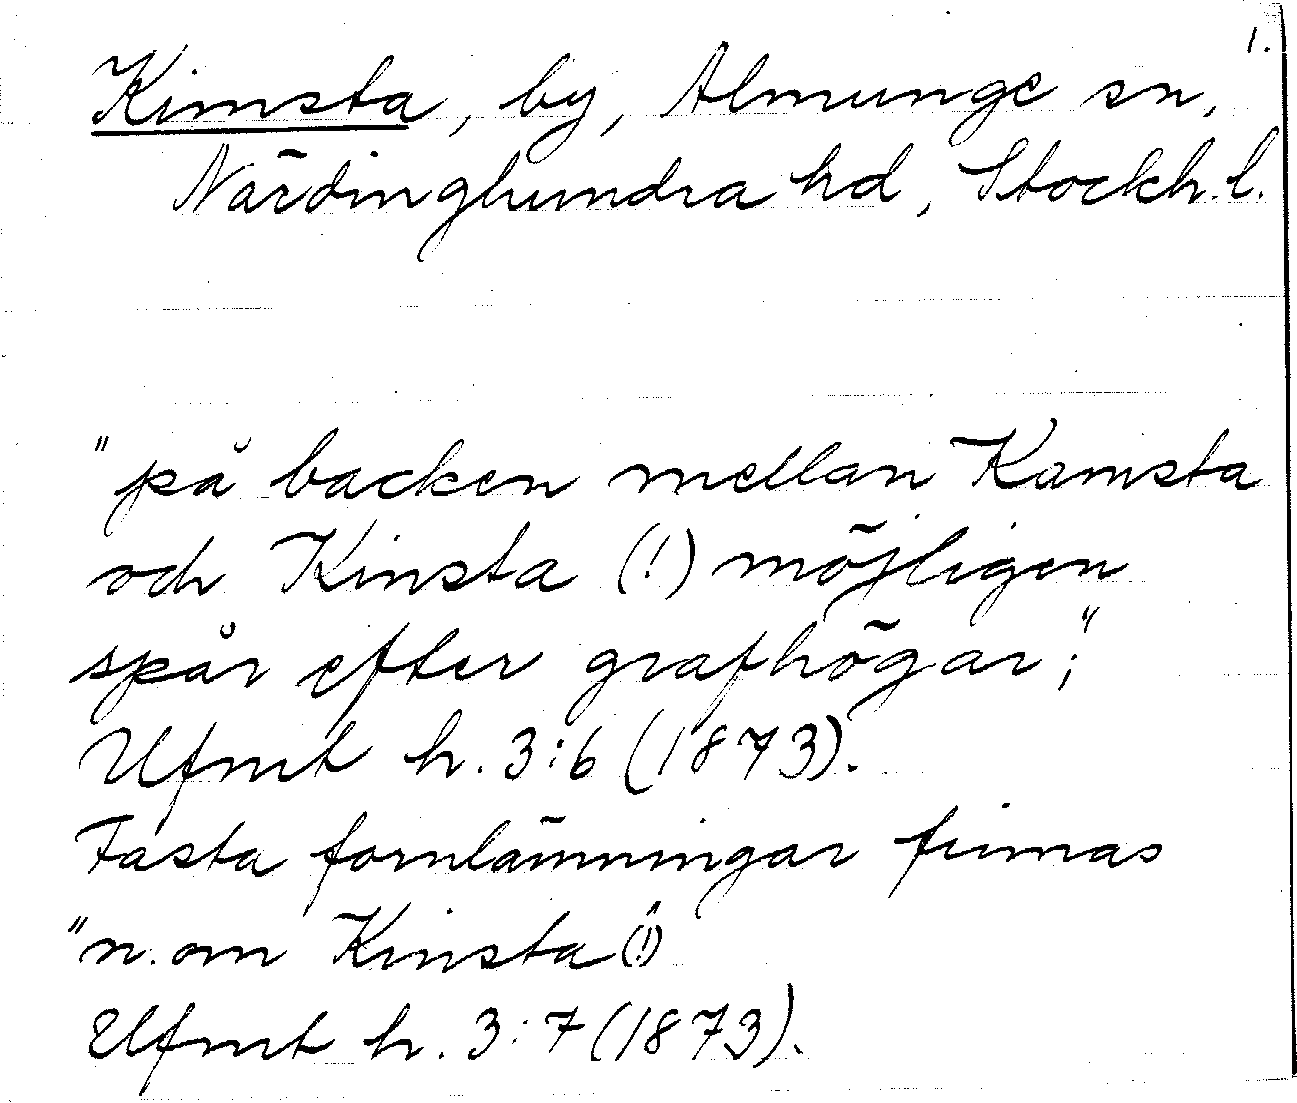 1.
Kimsta, by, Almunge sn,
Närdinghundra hd, Stockh. l.
"på backen mellan Kamsta
och Kinsta (!) möjligen
spår efter grafhögar;"
Ufmt h. 3:6 (1873).
Fasta fornlämningar finnas
"n. om Kinsta (!)"
Ufmt h. 3:7 (1873).